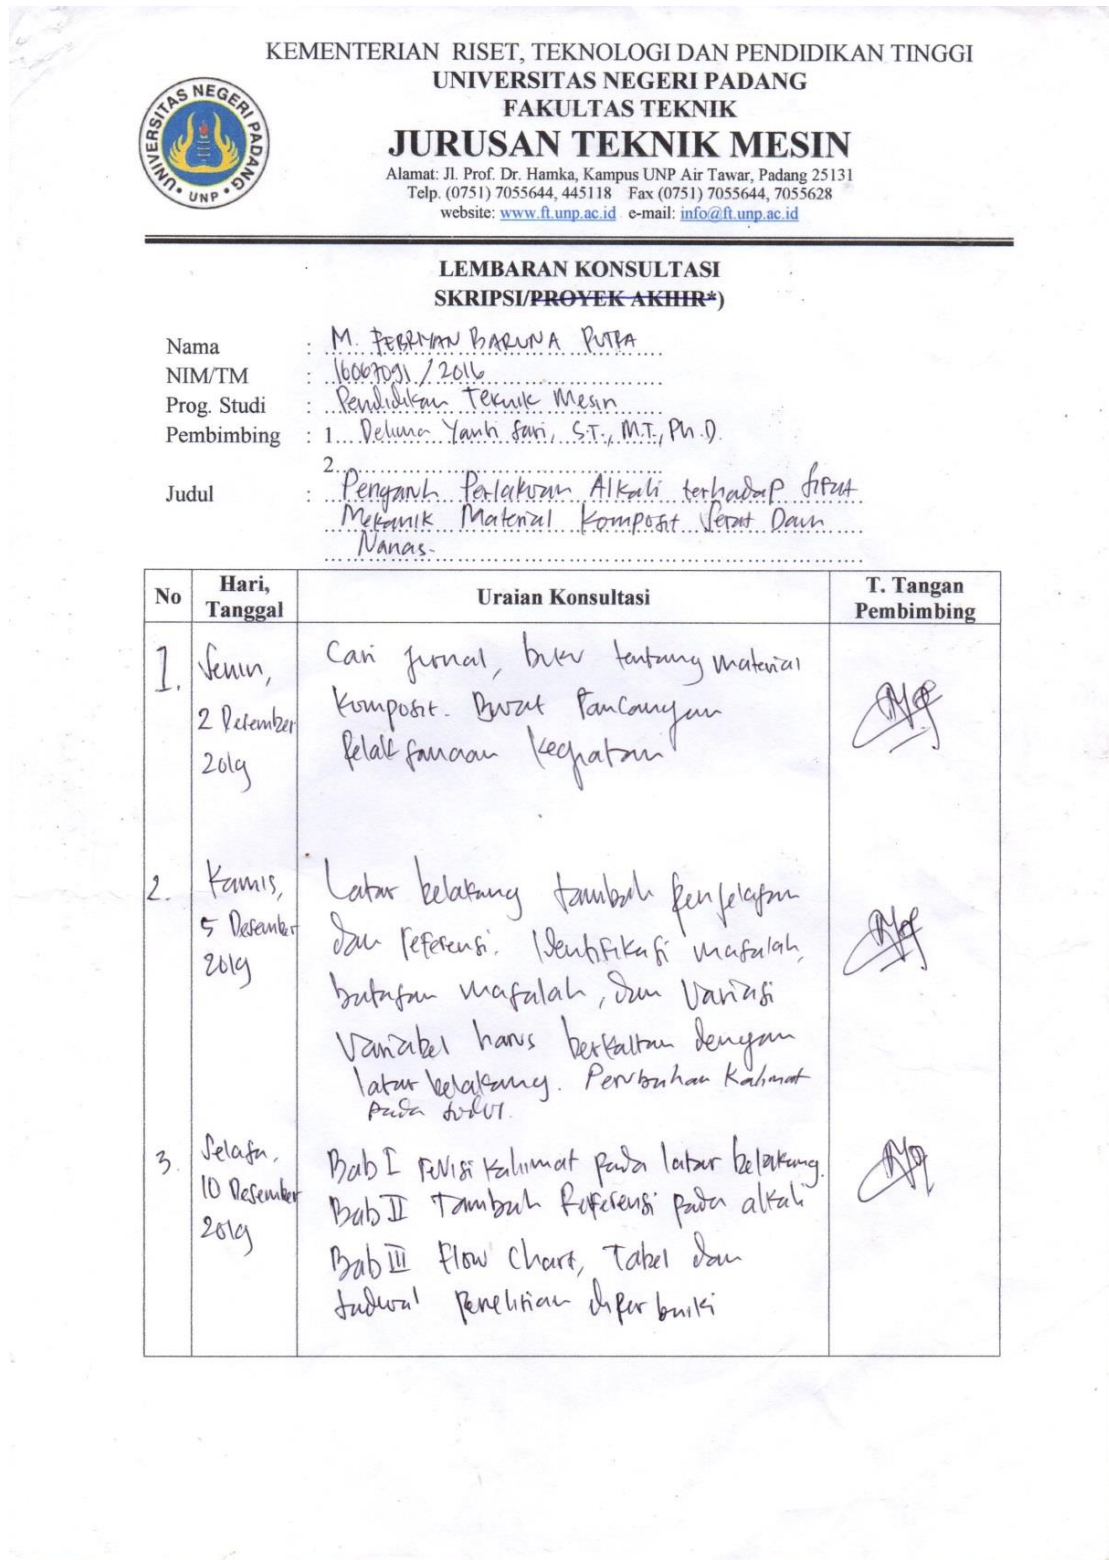 KEMENTERIAN RISET, TEKNOLOGI DAN PENDIDIKAN TINGGI
UNIVERSITAS NEGERI PADANG
FAKULTAS TEKNIK
JURUSAN TEKNIK MESIN
Alamat: Jl. Prof. Dr. Hamka, Kampus UNP Air Tawar, Padang 25131
Telp. (0751) 7055644, 445118 Fax (0751) 7055644, 7055628
website: www.ft.unp.ac.id e-mail: info@ft.unp.ac.id
UNIVERSITAS NEGERI PADANG
UNP
LEMBARAN KONSULTASI
SKRIPSI/PROYEK AKHIR*)
Nama : M. FEBRIYAN BARUNA PUTRA
NIM/TM : 16067091 / 2016
Prog. Studi : Pendidikan Teknik Mesin
Pembimbing : 1. Delima Yanti Sari, S.T., M.T., Ph.D.
2.
Judul : Pengaruh Perlakuan Alkali terhadap Sifat
Mekanik Material Komposit Serat Daun
Nanas.
No Hari, Tanggal Uraian Konsultasi T. Tangan Pembimbing
1. Senin, Cari jurnal, buku tentang material
2 Desember komposit. Buat Rancangan
2019 Pelaksanaan Kegiatan
2. Kamis, Latar belakang tambah penjelasan
5 Desember dan referensi. Identifikasi masalah,
2019 batasan masalah, dan Variasi
Variabel harus berkaitan dengan
latar belakang. Perubahan Kalimat
pada judul.
3. Selasa, Bab I revisi kalimat pada latar belakang.
10 Desember Bab II Tambah Referensi pada alkali
2019 Bab III Flow Chart, Tabel dan
Jadwal penelitian diperbaiki